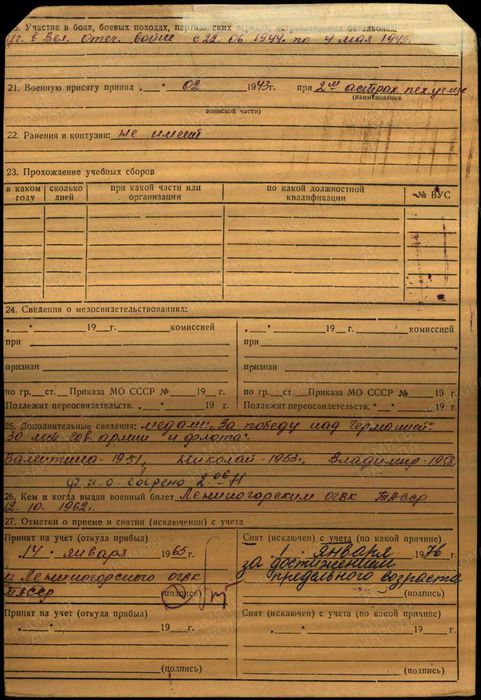 20. Участие в боях, боевых походах, партизанских
уч. в Вел. Отеч. войне с 22.06 1944 г. по 9 мая 1945
21. Военную присягу принял „ • 02 1943г. при 2м астрах. пех. уч-ще
(наименование
воинской части)
22. Ранения и контузии: не имеет
23. Прохождение учебных сборов
в каком году
сколько дней
при какой части или организации
по какой должностной квалификации
№ ВУС
24. Сведения о медосвидетельствованиях:
„ • 19 г. комиссией
„ • 19 г. комиссией
при
при
признан
признан
по гр. ст. Приказа МО СССР № 19 г.
по гр. ст. Приказа МО СССР № 19 г.
Подлежит переосвидетельств. • 19 г
Подлежит переосвидетельств. • 19 г
25. Дополнительные сведения: медали: За победу над Германией.
30 лет Сов. армии и флота.
Валентина-1951, Николай-1953, Владимир-1958
26. Кем и когда выдан военный билет Лениногорским огвк ТАССР
12. 10. 1962.
27. Отметки о приеме и снятии (исключении) с учета
Принят на учет (откуда прибыл)
Снят (исключен) с учета (по какой причине)
14 • января 1965 г.
1 • января 1976 г.
за достижением
из Лениногорского огвк
предельного возраста
ТАССР (подпись)
(подпись)
Принят на учет (откуда прибыл)
Снят (исключен) с учета (по какой причине)
„ • 19 г.
„ • 19 г.
(подпись)
(подпись)